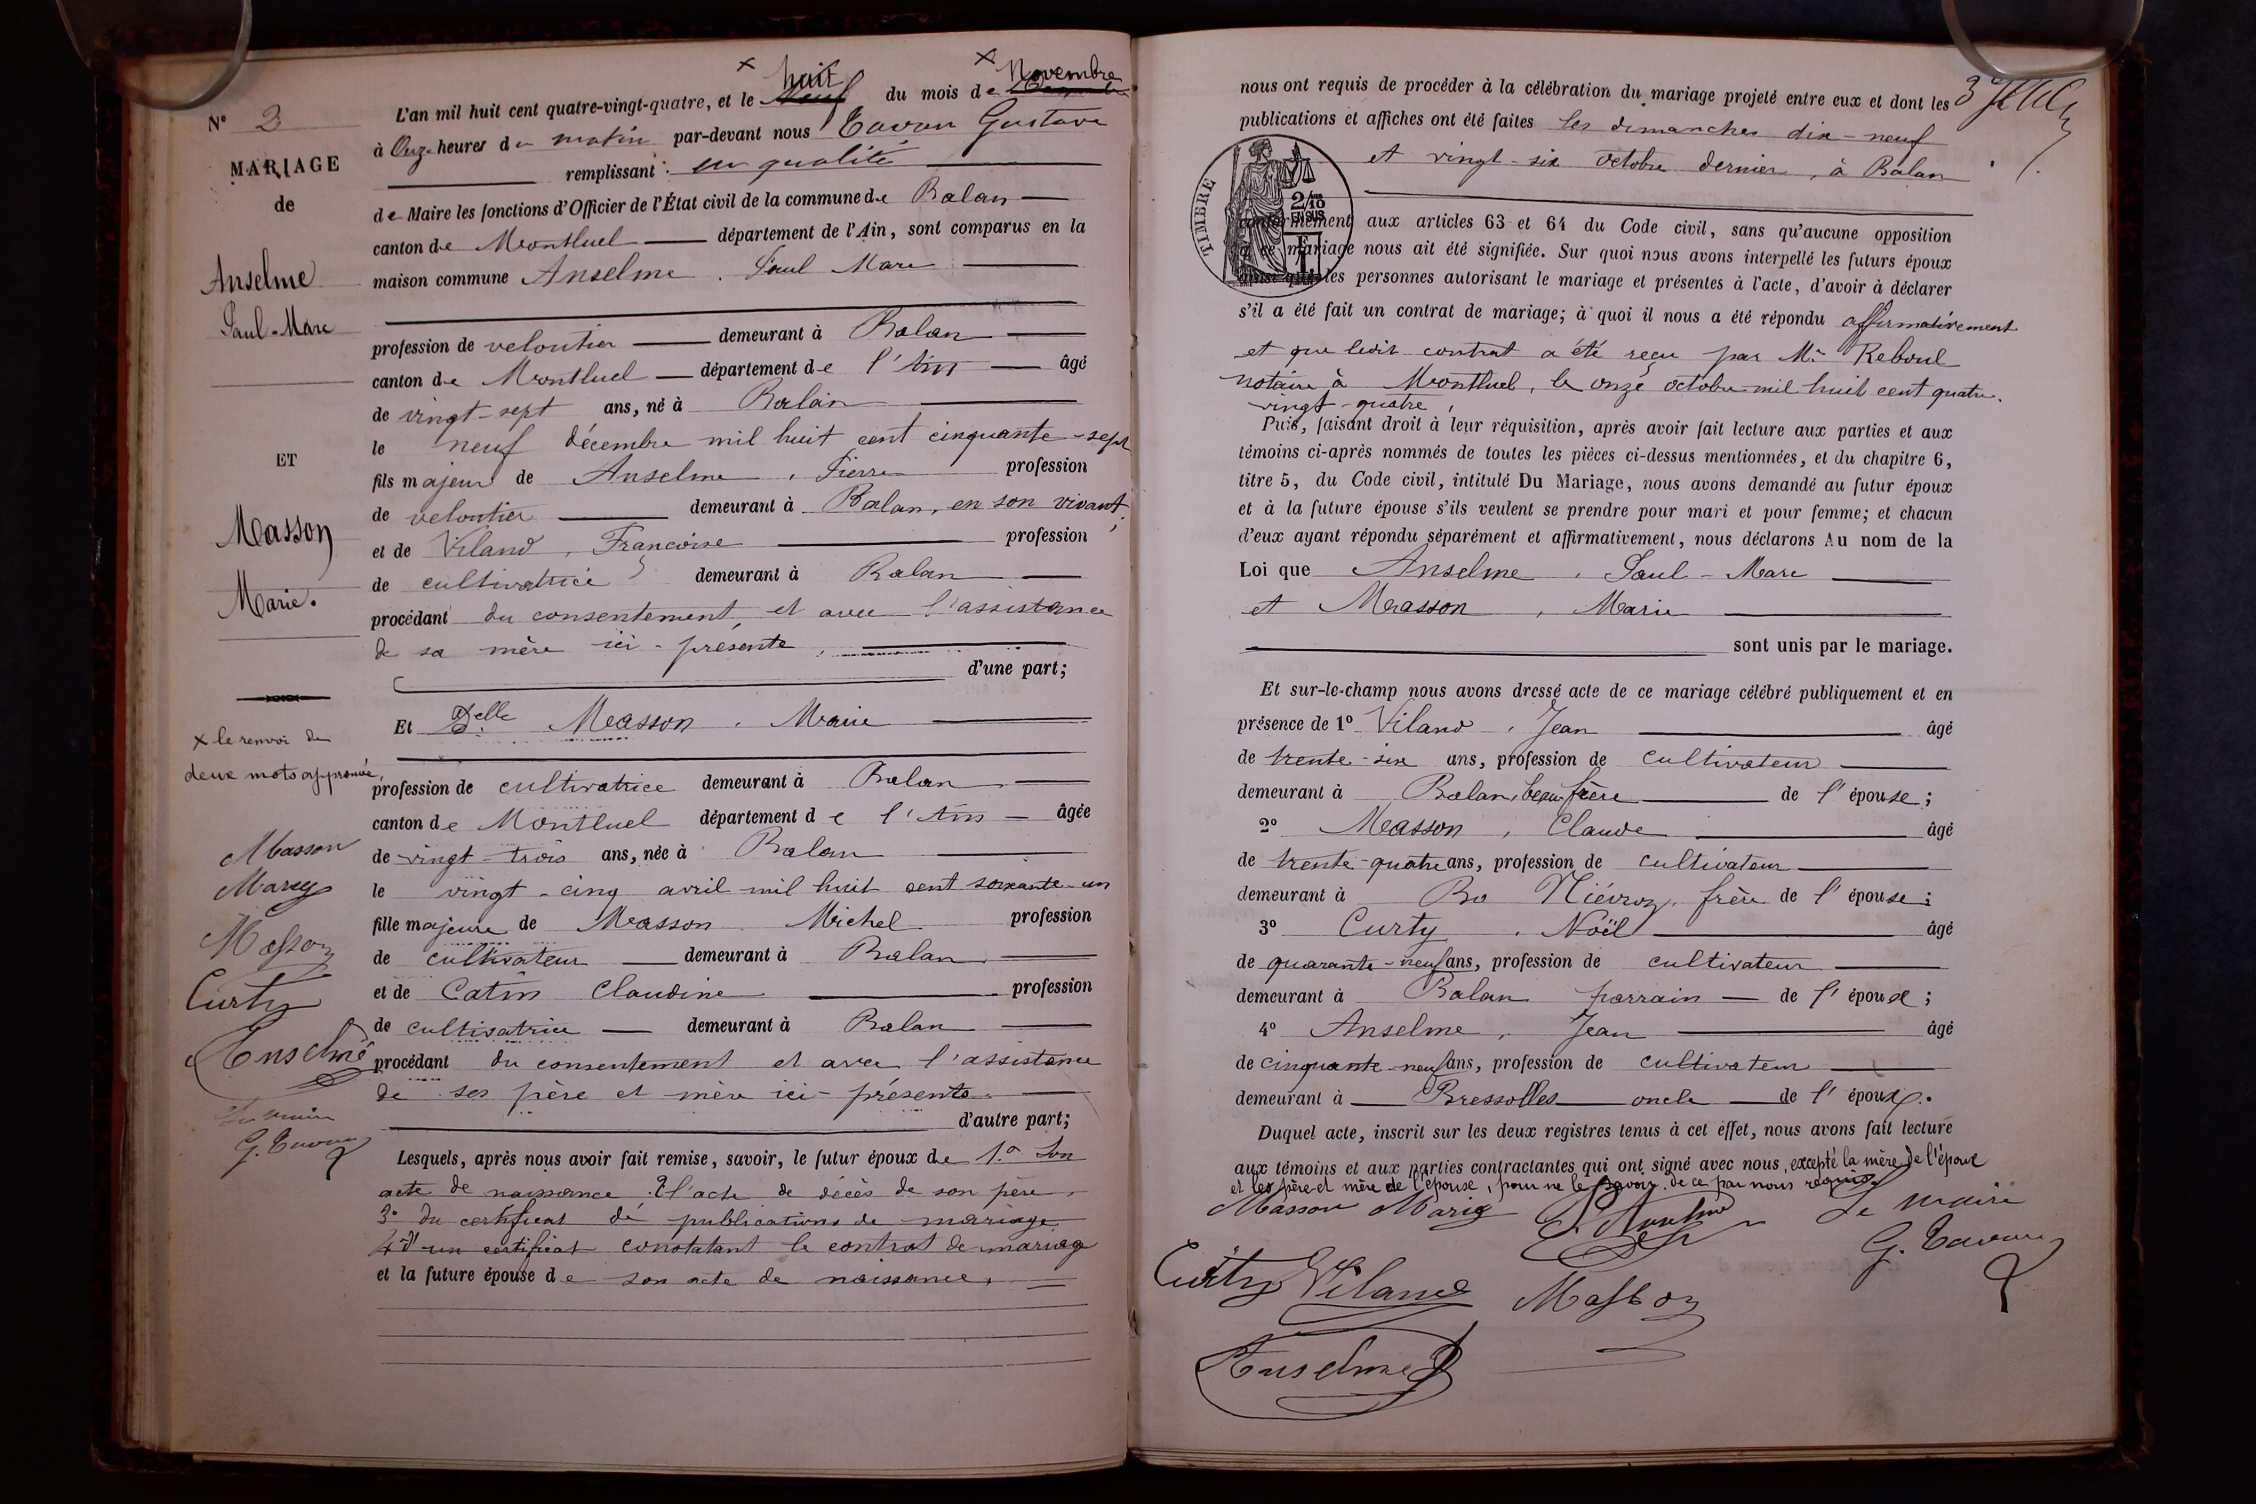 N° 3
MARIAGE
de
Anselme
Paul-Marc
ET
Masson
Marie.
x le renvoi de
deux mots approuvé,
Masson
Marey
Masson
Curty
Anselme
Le maire
G. Tavan
huit Novembre
L'an mil huit cent quatre-vingt-quatre, et le neuf du mois de
à Onze heures du matin par-devant nous Tavan Gustave
remplissant en qualité
de Maire les fonctions d'Officier de l'État civil de la commune de Balan
canton de Montluel département de l'Ain, sont comparus en la
maison commune Anselme, Paul Marc
profession de veloutier demeurant à Balan
canton de Montluel département de l'Ain âgé
de vingt-sept ans, né à Balan
le neuf décembre mil huit cent cinquante-sept
fils majeur de Anselme, Pierre profession
de veloutier demeurant à Balan, en son vivant,
et de Viland, Françoise profession
de cultivatrice demeurant à Balan
procédant du consentement, et avec l'assistance
de sa mère ici-présente,
d'une part;
Et Delle Masson, Marie
profession de cultivatrice demeurant à Balan
canton de Montluel département de l'Ain âgée
de vingt-trois ans, née à Balan
le vingt-cinq avril mil huit cent soixante-un
fille majeure de Masson Michel profession
de cultivateur demeurant à Balan
et de Catin Claudine profession
de cultivatrice demeurant à Balan
procédant du consentement et avec l'assistance
de ses père et mère ici-présents
d'autre part;
Lesquels, après nous avoir fait remise, savoir, le futur époux de 1° son
acte de naissance 2° l'acte de décès de son père,
3° du certificat de publications de mariage
4° d'un certificat constatant le contrat de mariage
et la future épouse de son acte de naissance,
nous ont requis de procéder à la célébration du mariage projeté entre eux et dont les
publications et affiches ont été faites les dimanches dix-neuf
et vingt-six octobre dernier, à Balan
TIMBRE
2/10 EN SUS
conformément aux articles 63 et 64 du Code civil, sans qu'aucune opposition
à ce mariage nous ait été signifiée. Sur quoi nous avons interpellé les futurs époux
ainsi que les personnes autorisant le mariage et présentes à l'acte, d'avoir à déclarer
s'il a été fait un contrat de mariage; à quoi il nous a été répondu affirmativement
et que ledit contrat a été reçu par Me Reboul
notaire à Montluel, le onze octobre mil huit cent quatre-
vingt-quatre,
Puis, faisant droit à leur réquisition, après avoir fait lecture aux parties et aux
témoins ci-après nommés de toutes les pièces ci-dessus mentionnées, et du chapitre 6,
titre 5, du Code civil, intitulé Du Mariage, nous avons demandé au futur époux
et à la future épouse s'ils veulent se prendre pour mari et pour femme; et chacun
d'eux ayant répondu séparément et affirmativement, nous déclarons Au nom de la
Loi que Anselme, Paul-Marc
et Masson, Marie
sont unis par le mariage.
Et sur-le-champ nous avons dressé acte de ce mariage célébré publiquement et en
présence de 1° Viland, Jean âgé
de trente-six ans, profession de cultivateur
demeurant à Balan, beau-frère de l'épouse;
2° Masson, Claude âgé
de trente-quatre ans, profession de cultivateur
demeurant à Niévroz, frère de l'épouse;
3° Curty, Noël âgé
de quarante-neuf ans, profession de cultivateur
demeurant à Balan parrain de l'épouse;
4° Anselme, Jean âgé
de cinquante-neuf ans, profession de cultivateur
demeurant à Bressolles oncle de l'époux.
Duquel acte, inscrit sur les deux registres tenus à cet effet, nous avons fait lecture
aux témoins et aux parties contractantes qui ont signé avec nous, excepté la mère de l'époux
et les père et mère de l'épouse, pour ne le savoir, de ce par nous requis.
Masson Marie P. Anselme Le maire
G. Tavan
Curty Viland Masson
Anselme